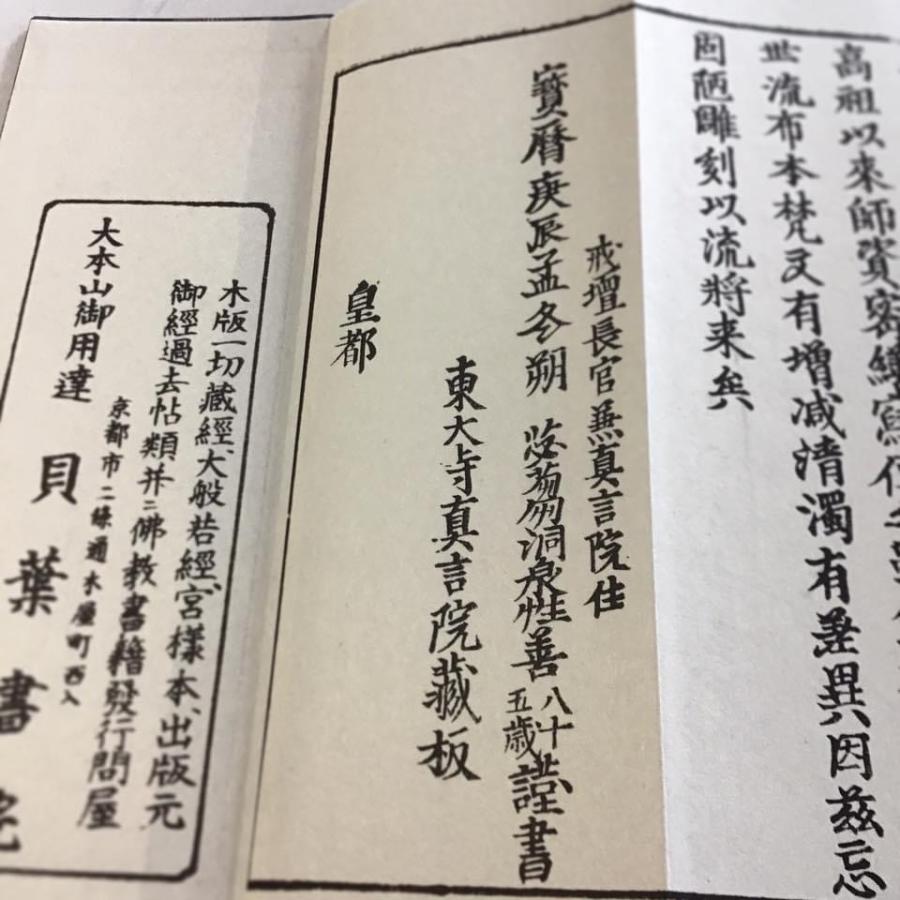 高祖以来師資密
世流布本梵文有增减清濁有差異因兹忘
固陋雕刻以流將来矣
戒壇長官兼真言院住
寶曆庚辰孟冬朔 苾蒭洞泉性善八十五歲謹書
東大寺真言院藏板
皇都
木版一切藏經、大般若經、宮樣本、出版元
御經過去帖類并ニ佛教書籍發行問屋
京都市二條通木屋町西入
大本山御用達 貝葉書院